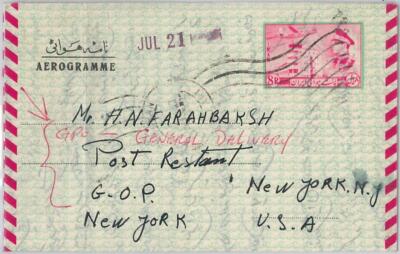 نامه هوائی
AEROGRAMME
JUL 21
8R
Mr. H.N. FARAHBAKSH
GPO — GENERAL DELIVERY
Post Restant
G.O.P. New York. N.Y
New York U.S.A